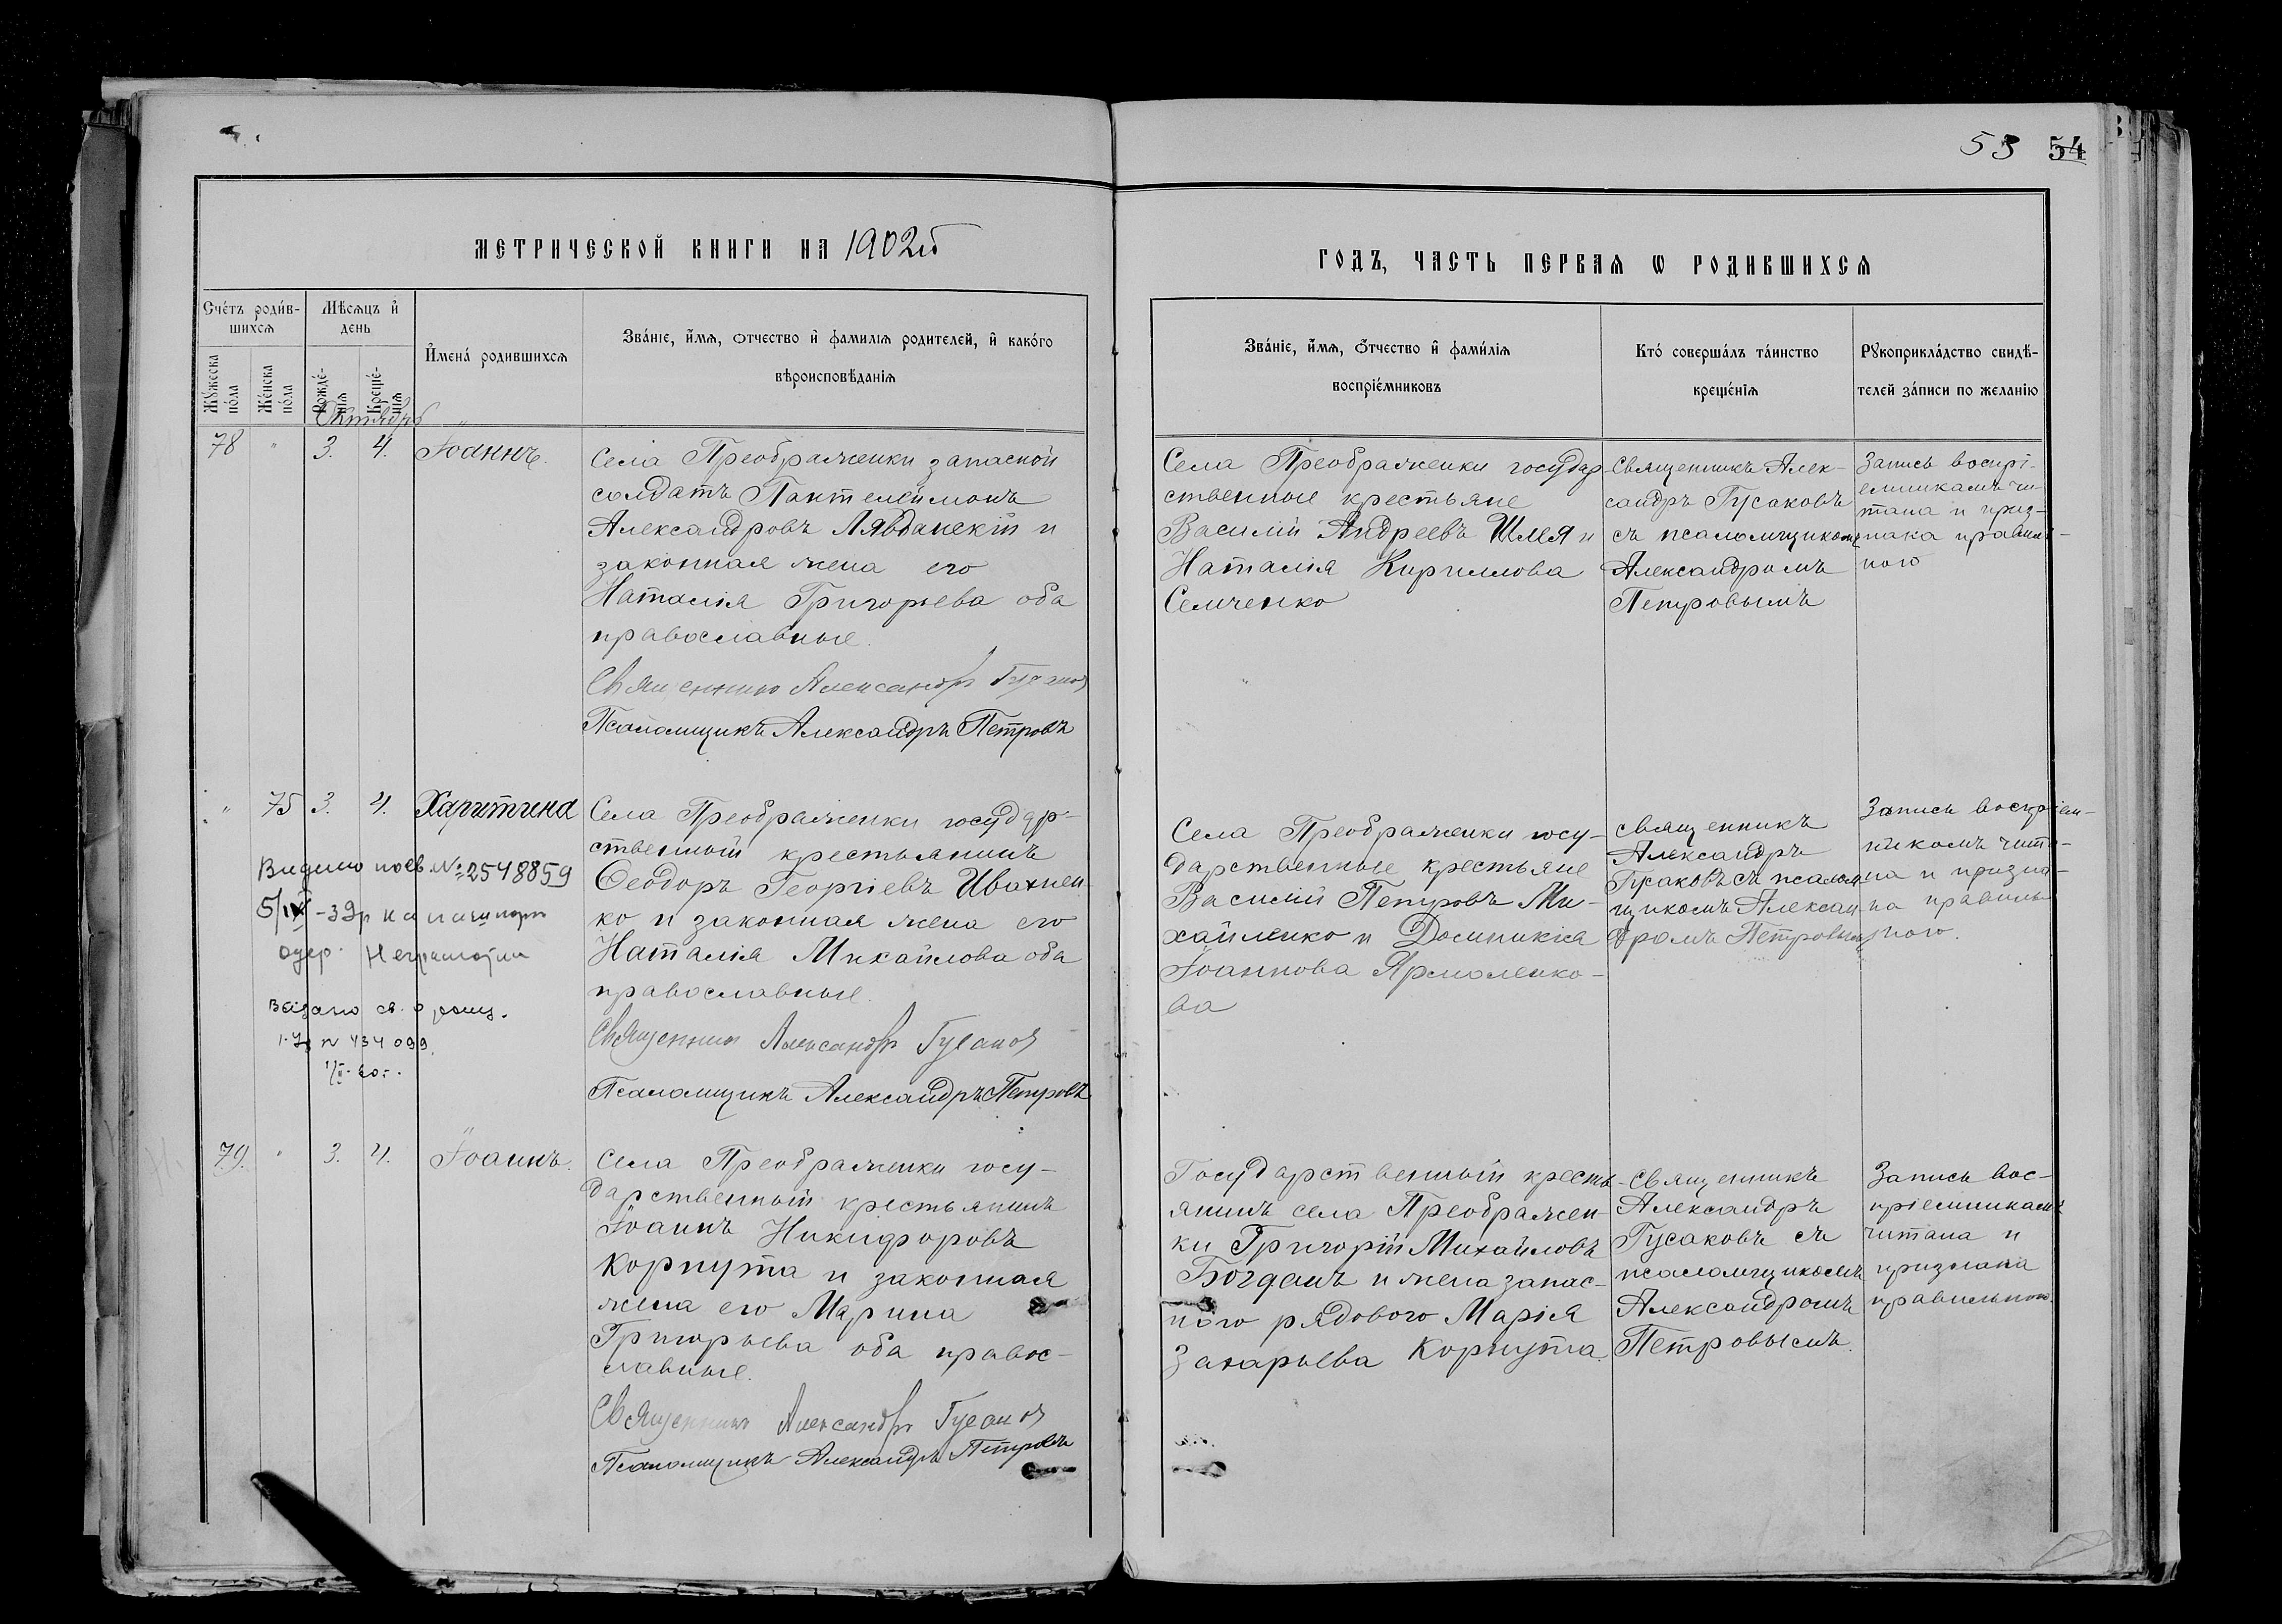 53 54
МЕТРИЧЕСКОЙ КНИГИ НА 1902й
ГОДЪ, ЧАСТЬ ПЕРВАѦ Ѡ РОДИВШИХСѦ
Сче́тъ роди́в-
шихсѧ
Мѣсѧцъ и҆
день
И҆мена́ родившихсѧ
Зва́нїе, и҆́мѧ, ѻтчество и҆ фамилїѧ родителей, и҆ како́го
вѣроисповѣданїѧ
Мꙋжеска
по́ла
Же́нска
по́ла
Рожде́-
нїѧ
Креще́-
нїѧ
Октябрь
Зва́нїе, и҆́мѧ, ѻ҆́тчество и҆ фами́лїѧ
воспрїе́мниковъ
Кто̀ соверша́лъ та́инство
креще́нїѧ
Рꙋкоприкла́дство свидѣ́-
телей за́писи по желанїю
78 " 3. 4. Іоаннъ.
Села Преображенки запасной
солдатъ Пантелеймонъ
Александровъ Лявданскій и
законная жена его
Наталія Григорьева оба
православные.
Священникъ Александръ Гусаковъ
Псаломщикъ Александръ Петровъ
Села Преображенки государ-
ственные крестьяне
Василій Андреевъ Шлея и
Наталія Кириллова
Семченко
Священникъ Алек-
сандръ Гусаковъ
съ псаломщикомъ
Александромъ
Петровымъ
Запись воспрі-
емникамъ чи-
тана и приз-
нана правиль-
ною
" 75 3. 4. Харитина
Села Преображенки государ-
ственный крестьянинъ
Ѳеодоръ Георгіевъ Ивахнен-
ко и законная жена его
Наталія Михайлова оба
православные.
Священникъ Александръ Гусаковъ
Псаломщикъ Александръ Петровъ
№ 2548859
5/IX -39р на паспорт
Выдано св. о рожд.
№ 434099
60г.
Села Преображенки госу-
дарственные крестьяне
Василій Петровъ Ми-
хайленко и Домникія
Іоаннова Ярмоленко-
ва
Священникъ
Александръ
Гусаковъ съ псалом-
щикомъ Алексан-
дромъ Петровымъ
Запись воспріем-
никомъ чита-
на и призна-
на правиль-
ною.
79. " 3. 4. Іоаннъ.
Села Преображенки госу-
дарственный крестьянинъ
Іоаннъ Никифоровъ
Корнута и законная
жена его Марина
Григорьева оба правос-
лавные.
Священникъ Александръ Гусаковъ
Псаломщикъ Александръ Петровъ
Государственный кресть-
янинъ села Преображен-
ки Григорій Михайловъ
Богданъ и жена запас-
ного рядового Марія
Захарьева Корнута.
Священникъ
Александръ
Гусаковъ съ
псаломщикомъ
Александромъ
Петровымъ.
Запись вос-
пріемникамъ
читана и
признана
правильною.